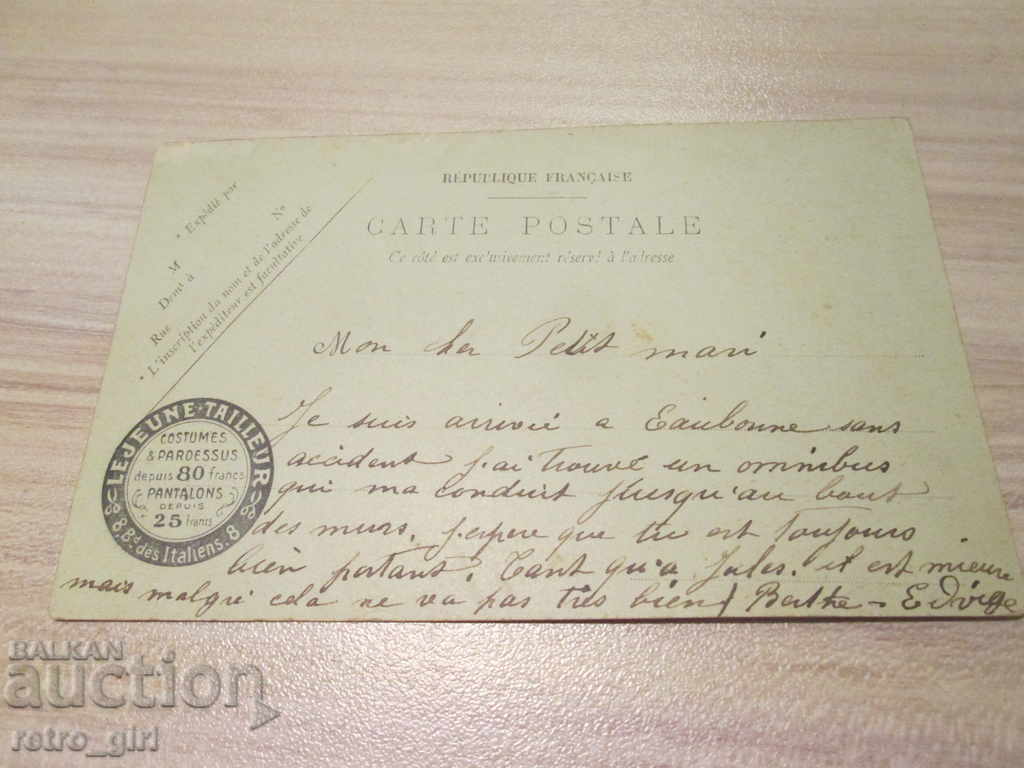 RÉPUBLIQUE FRANÇAISE
CARTE POSTALE
Ce côté est exclusivement réservé à l'adresse
* Expédié par
M
Demt à
Rue
No
* L'inscription du nom et de l'adresse de
l'expéditeur est facultative
LEJEUNE-TAILLEUR
COSTUMES
& PARDESSUS
depuis 80 francs
PANTALONS
DEPUIS
25 francs
8.Bd des Italiens.8
Mon cher Petit mari
Je suis arrivié a Eaubonne sans
accident j'ai trouvé un omnibus
qui ma conduit jusqu'au bout
des murs, j'espere que tu est toujours
bien portant. Tant qu'a Jules. il est mieux
mais malgré cela ne va pas très bien Berthe - Edvige
BALKAN
auction
retro_girl